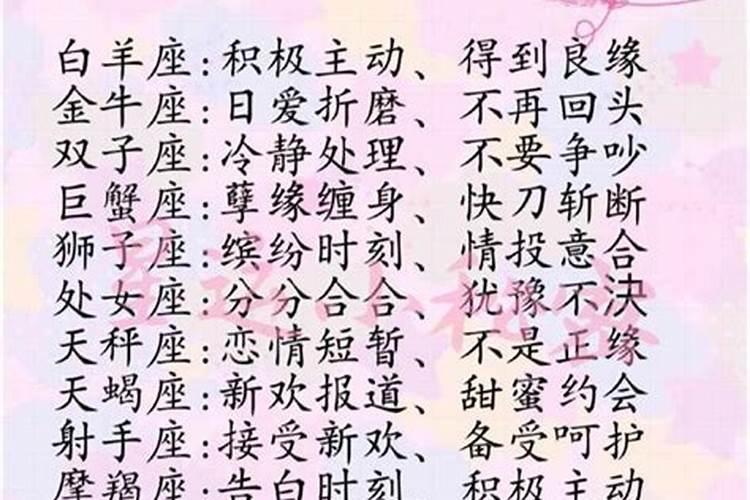 白羊座:积极主动、得到良缘
金牛座:日爱折磨、不再回头
双子座:冷静处理、不要争吵
巨蟹座:孽缘缠身、快刀斩断
狮子座:缤纷时刻、情投意合
处女座:分分合合、犹豫不決
天秤座:恋情短暂、不是正缘
天蝎座:新欢报道、甜蜜约会
射手座:接受新欢、备受呵护
摩羯座:告白时刻、积极主动
星运小秘密